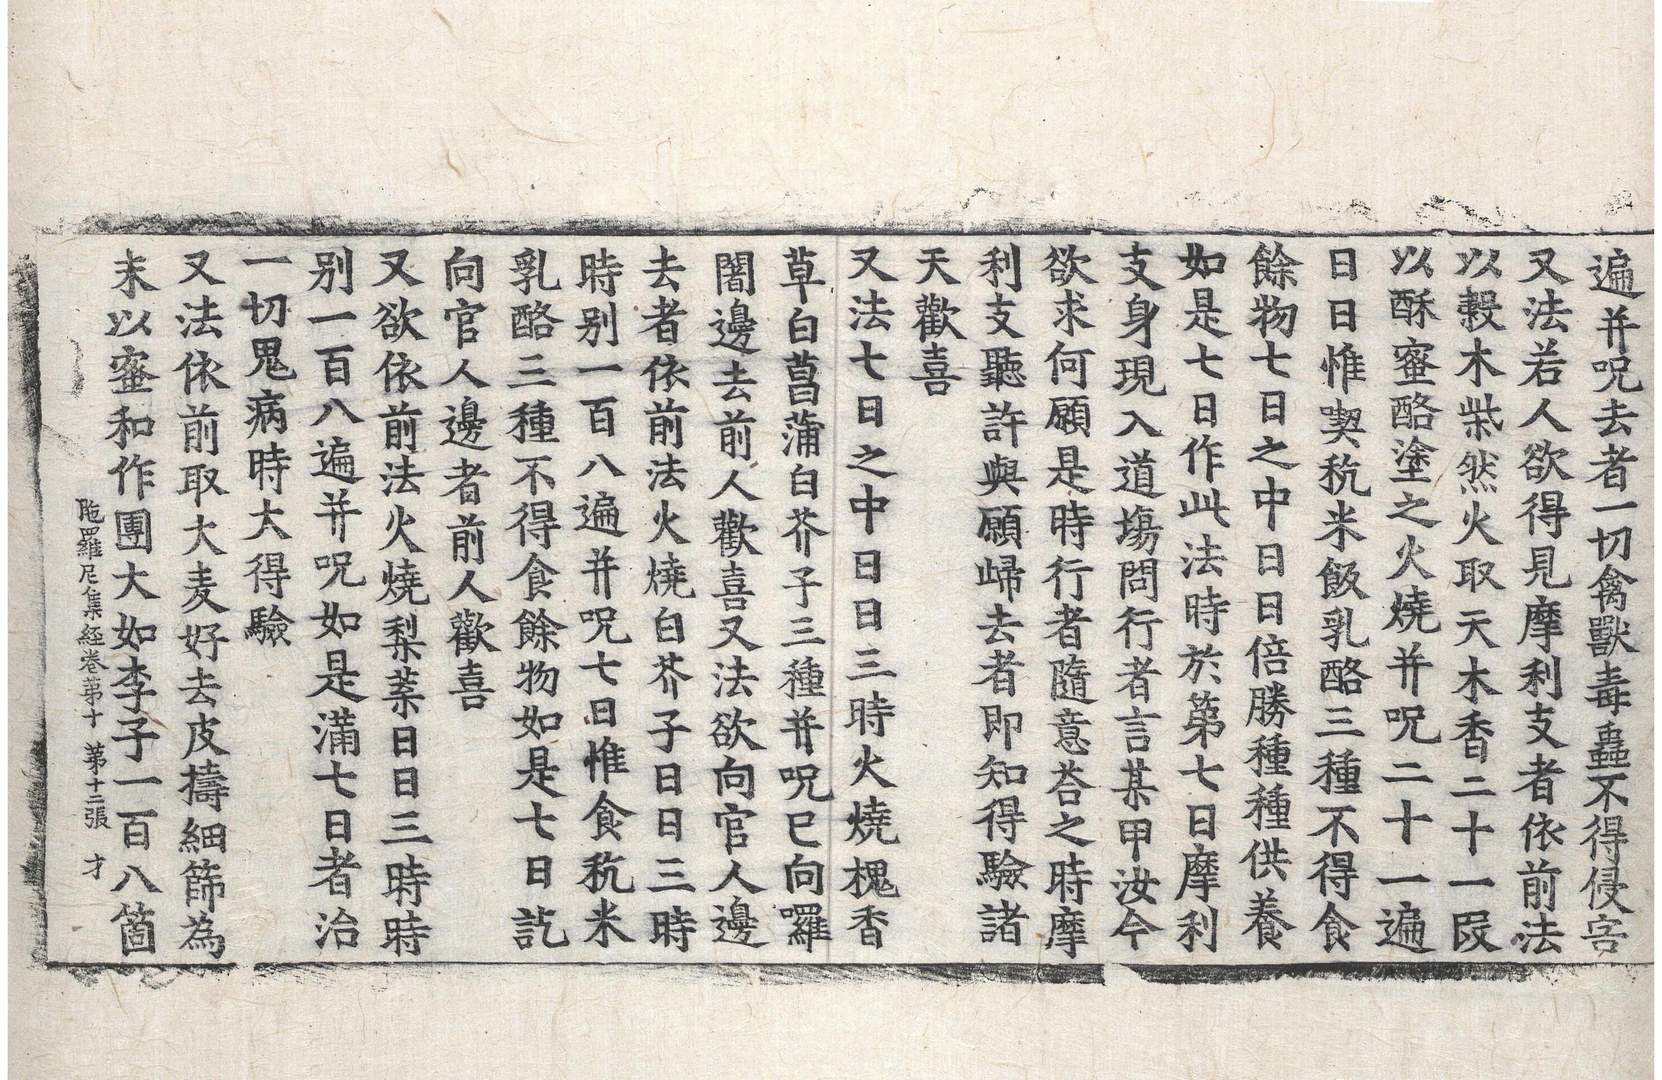 遍并呪去者一切禽獸毒蟲不得侵害
又法若人欲得見摩利支者依前法
以穀木柴然火取天木香二十一段
以酥蜜酪塗之火燒并呪二十一遍
日日惟喫秔米飯乳酪三種不得食
餘物七日之中日日倍勝種種供養
如是七日作此法時於第七日摩利
支身現入道場問行者言某甲汝今
欲求何願是時行者隨意荅之時摩
利支聽許與願歸去者即知得驗諸
天歡喜
又法七日之中日日三時火燒槐香
草白菖蒲白芥子三種并呪已向囉
闍邊去前人歡喜又法欲向官人邊
去者依前法火燒白芥子日日三時
時別一百八遍并呪七日惟食秔米
乳酪三種不得食餘物如是七日訖
向官人邊者前人歡喜
又欲依前法火燒梨葉日日三時時
別一百八遍并呪如是滿七日者治
一切鬼病時大得驗
又法依前取大麦好去皮擣細篩為
末以蜜和作團大如李子一百八箇
陁羅尼集経卷第十 第十二張 才